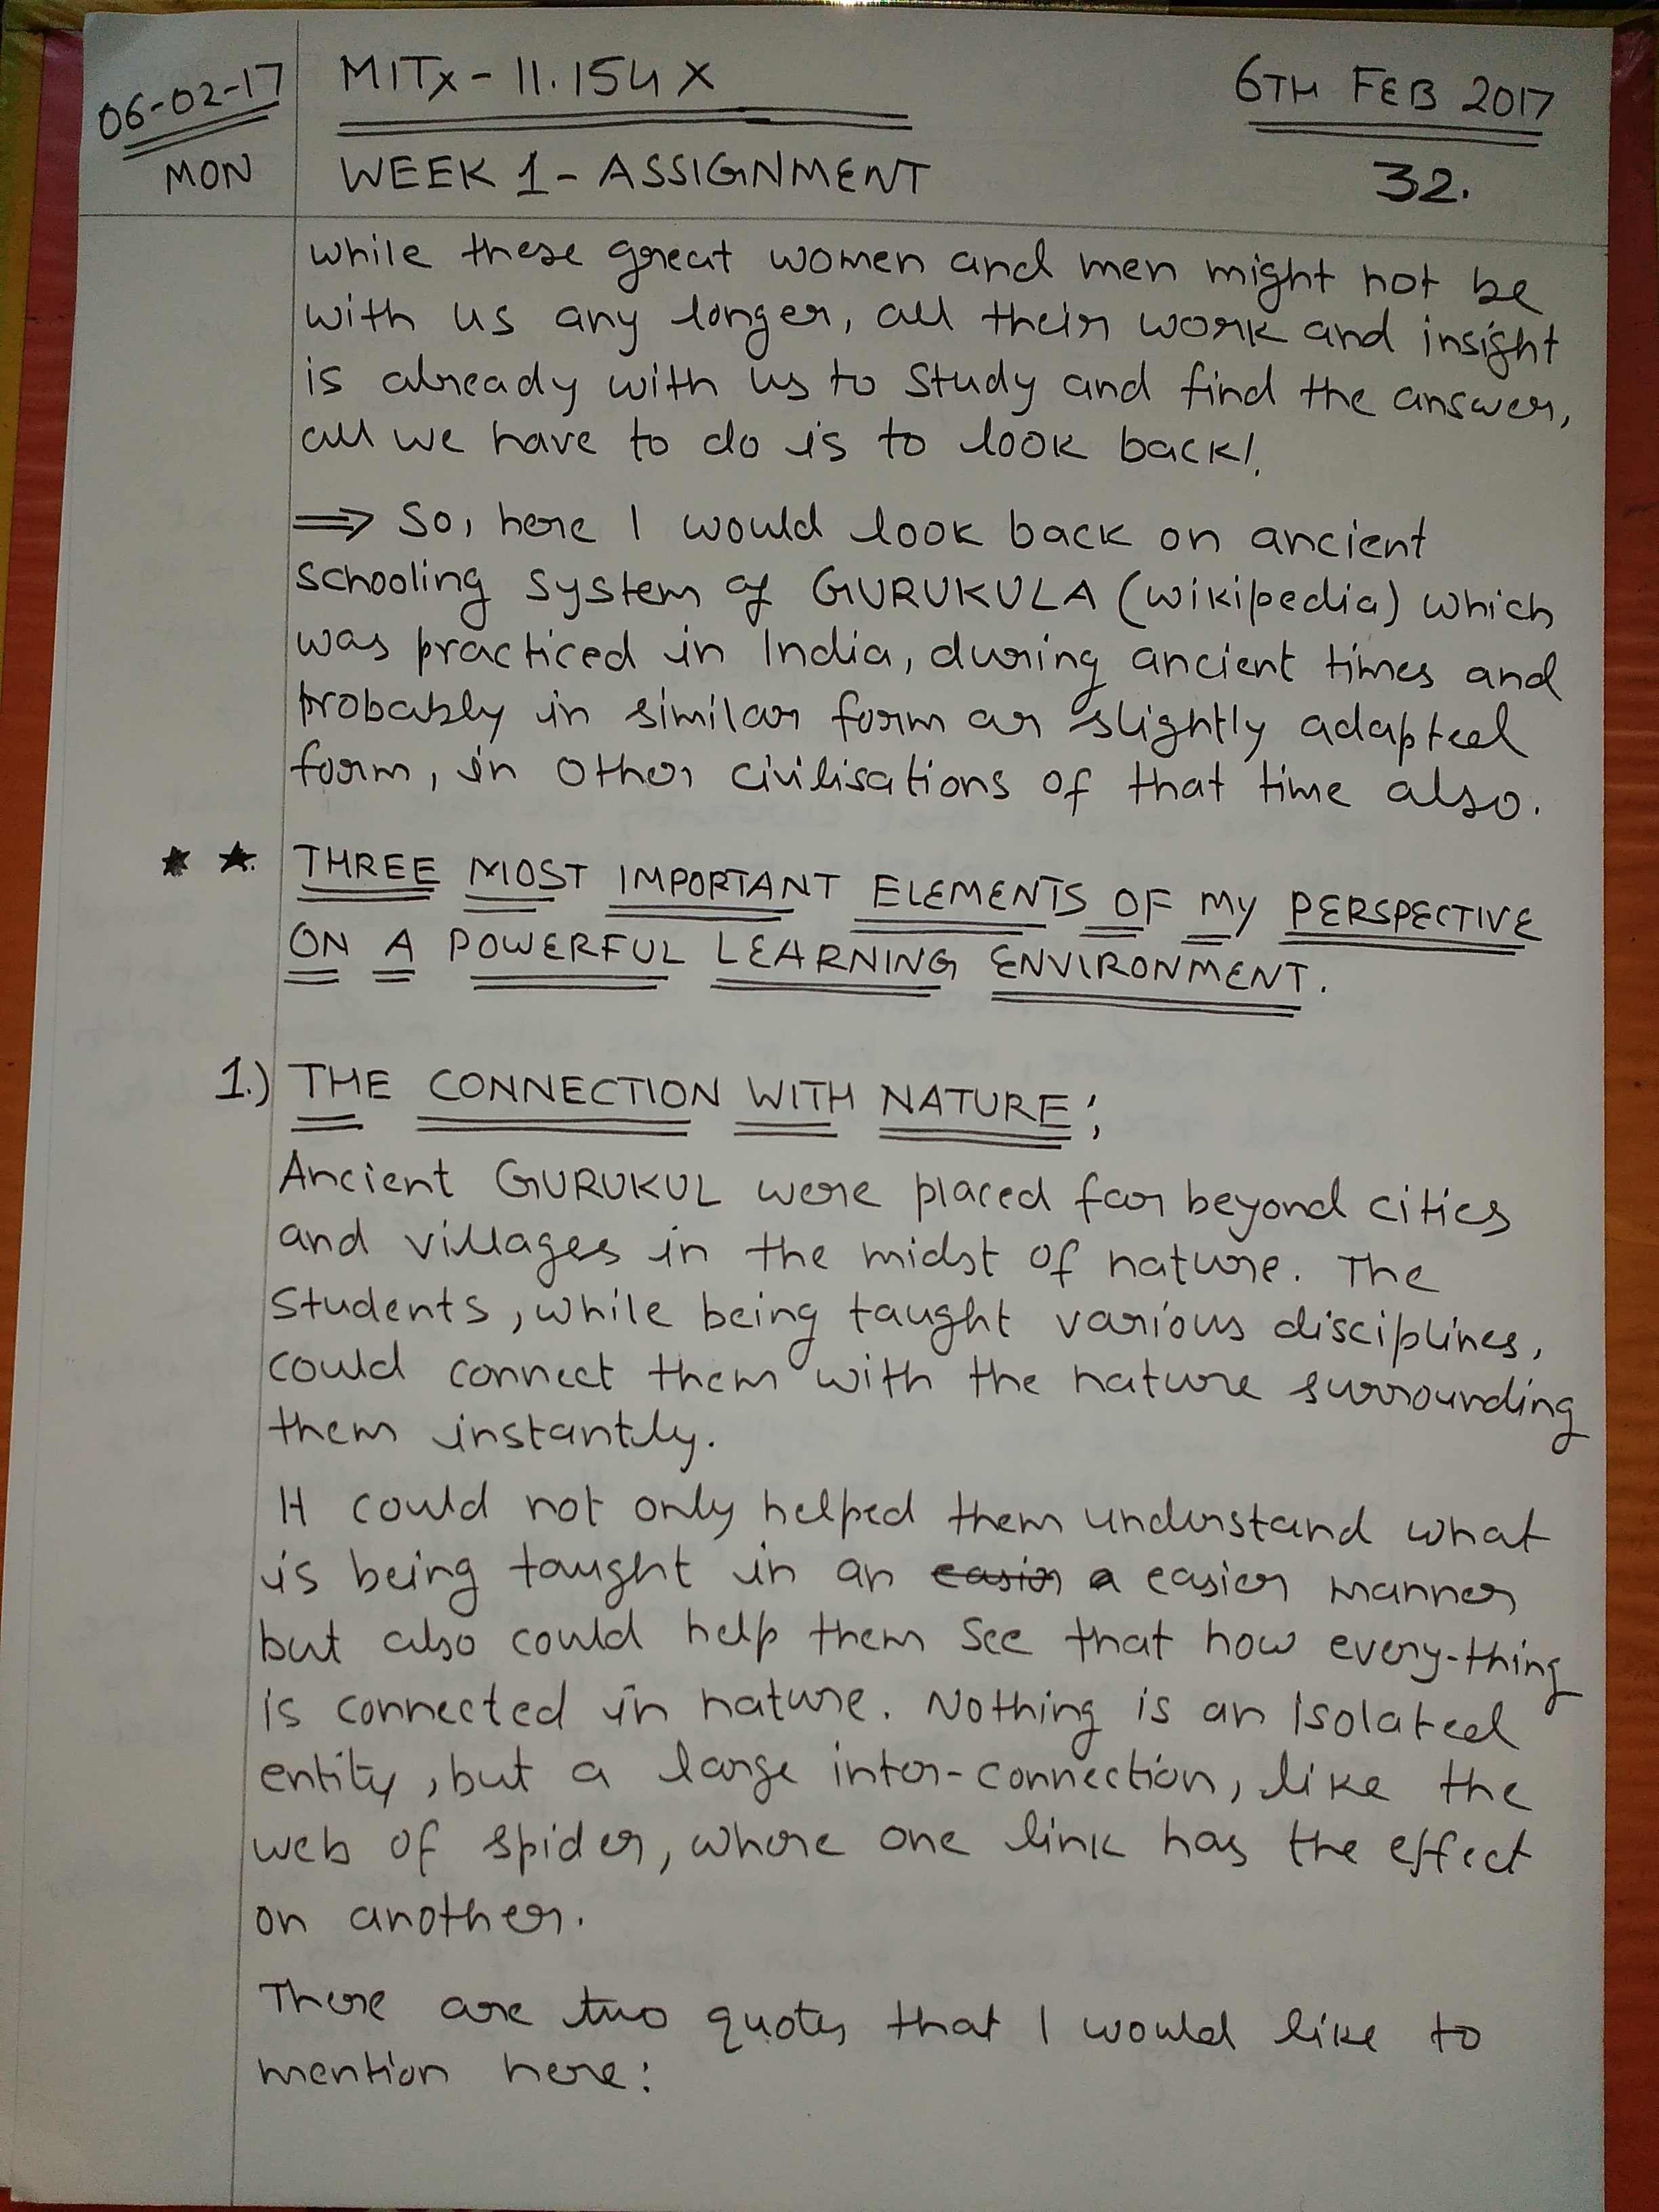 06-02-17
MON
MITx - 11.154X
WEEK 1 - ASSIGNMENT
6TH FEB 2017
32.
while these great women and men might not be
with us any longer, all their work and insight
is already with us to study and find the answer,
all we have to do is to look back!
⇒ So, here I would look back on ancient
schooling system of GURUKULA (wikipedia) which
was practiced in India, during ancient times and
probably in similar form or slightly adapted
form, in other civilisations of that time also.
★ ★. THREE MOST IMPORTANT ELEMENTS OF MY PERSPECTIVE
ON A POWERFUL LEARNING ENVIRONMENT.
1.) THE CONNECTION WITH NATURE;
Ancient GURUKUL were placed far beyond cities
and villages in the midst of nature. The
students, while being taught various disciplines,
could connect them with the nature surrounding
them instantly.
It could not only helped them understand what
is being taught in an easier a easier manner
but also could help them see that how every-thing
is connected in nature. Nothing is an isolated
entity, but a large inter-connection, like the
web of spider, where one link has the effect
on another.
There are two quotes that I would like to
mention here: